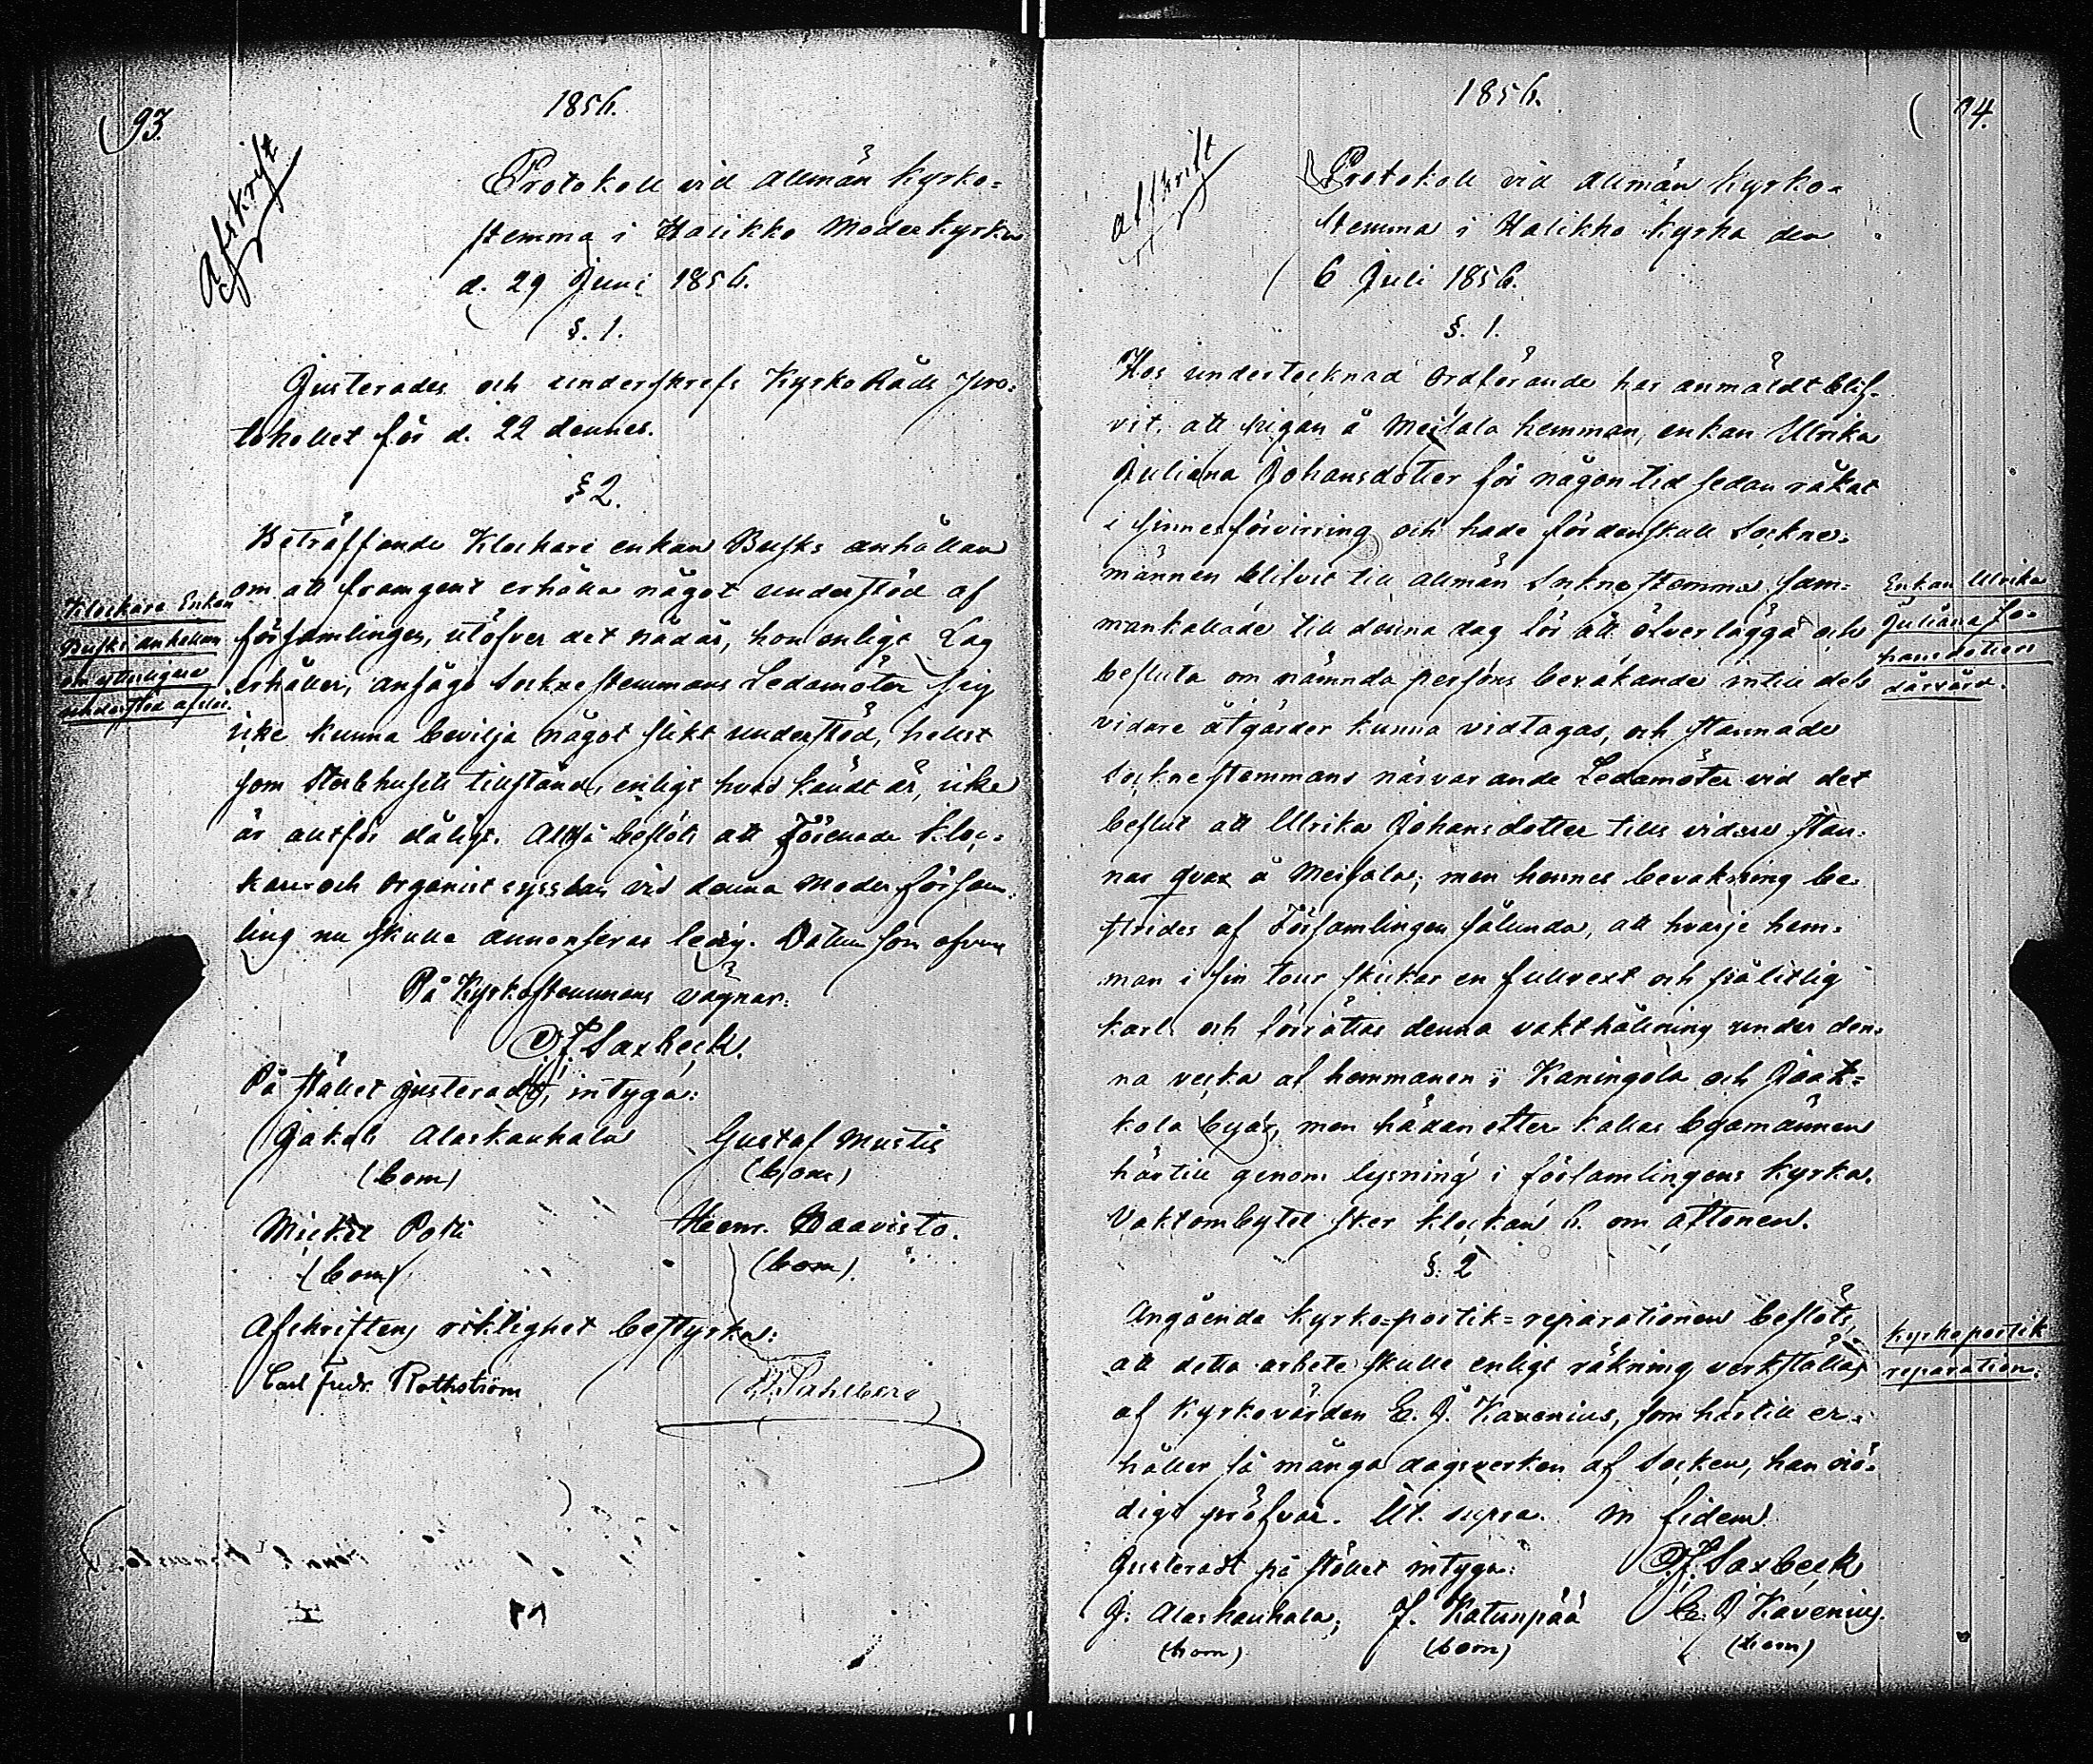 93.
1856.
Afskrift
Protokoll vid allmän Kyrko-
stemma i Halikko Moderkyrka
d. 29 Juni 1856.
§. 1.
Justerades och underskrefs KyrkoRåds pro-
tokollet för d. 22 dennes.
§ 2.
Beträffande Klockare enkan Busks anhållan
om att framgent erhålla något understöd af
församlingen, utöfver det nådår, hon enligt Lag
erhåller, ansågo Sockenstemmans Ledamöter sig
icke kunna bevilja något slikt understöd, helst
som Stockhusets tillstånd, enligt hvad kändt är, icke
är alltför dåligt. Alltså beslöts att Förenade Kloc-
kare och Organist sysslan vid denna Moder försam-
ling nu skulle annonseras ledig. Datum som ofvan
På Kyrkostemmans vägnar:
F. Saxbeck.
På stället justeradt, intyga:
Jakob Alaskauhala Gustaf Mustis
(bom) (bom)
Mickel Potti Henr. Haavisto.
(bom) (bom)
Afskriftens riktighet bestyrka:
Carl Fredr. Rothström Pahlberg
Klockare Enkan
Busks anhållan
om ytterligare
understöd afslås.
1856.
94.
afskrift
Protokoll vid allmän Kyrko-
stemma i Halikko kyrka den
6 Juli 1856.
§. 1.
Hos undertecknad Ordförande har anmäldt blif-
vit, att pigan å Meisala hemman, enkan Ulrika
Juliana Johansdotter för någon tid sedan råkat
i sinnesförvirring och hade fördenskull Sockne-
männen blifvit till allmän Socknestemma sam-
mankallade till denna dag för att öfverlägga och
besluta om nämnda persons bevakande intill dess
vidare åtgärder kunna vidtagas, och stannade
Socknestemmans närvarande Ledamöter vid det
beslut att Ulrika Johansdotter tills vidare stan-
nar qvar å Meisala; men hennes bevakning be-
strides af Församlingen sålunda, att hvarje hem-
man i sin tour skickar en fullvext och pålitlig
karl och förrättas denna vakthållning under den-
na vecka af hemmanen i Kaningola och Jaat-
kola byar, men hädanefter kallas byamännen
härtill genom lysning i församlingens kyrka.
Vaktombytet sker klockan 6. om aftonen.
§. 2
Angående kyrko-portik-reparationen beslöts,
att detta arbete skulle enligt räkning verkställas
af Kyrkovärden E. J. Kavenius, som härtill er-
håller så många dagsverken af Socken, han nö-
digt pröfvar. Ut supra. In fidem
Justeradt på stället intyga: F. Saxbeck
J. Alaskauhala, J. Katunpää E. J. Kavenius.
(bom) (bom) (bom)
Enkan Ulrika
Juliana Jo-
hansdotters
dårvård.
Kyrkoportik
reparation.